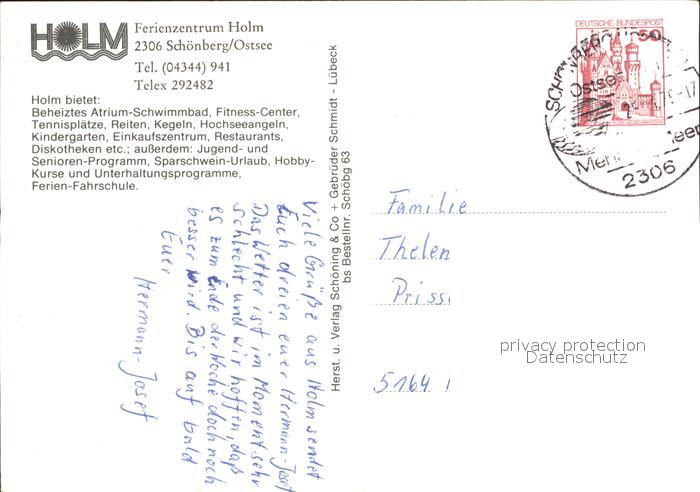 HOLM
Ferienzentrum Holm
2306 Schönberg/Ostsee
Tel. (04344) 941
Telex 292482
Holm bietet:
Beheiztes Atrium-Schwimmbad, Fitness-Center,
Tennisplätze, Reiten, Kegeln, Hochseeangeln,
Kindergarten, Einkaufszentrum, Restaurants,
Diskotheken etc.; außerdem: Jugend- und
Senioren-Programm, Sparschwein-Urlaub, Hobby-
Kurse und Unterhaltungsprogramme,
Ferien-Fahrschule.
Viele Grüße aus Holm sendet
Euch dreien euer Hermann-Josef
Das Wetter ist im Moment sehr
schlecht und wir hoffen, daß
es zum Ende der Woche doch noch
besser wird. Bis auf bald
Euer
Hermann-Josef
Herst. u. Verlag Schöning & Co + Gebrüder Schmidt - Lübeck
bs Bestellnr. Schöbg 63
DEUTSCHE BUNDESPOST
50
Ostsee
2306
Familie
Thelen
Priss
5164
privacy protection
Datenschutz